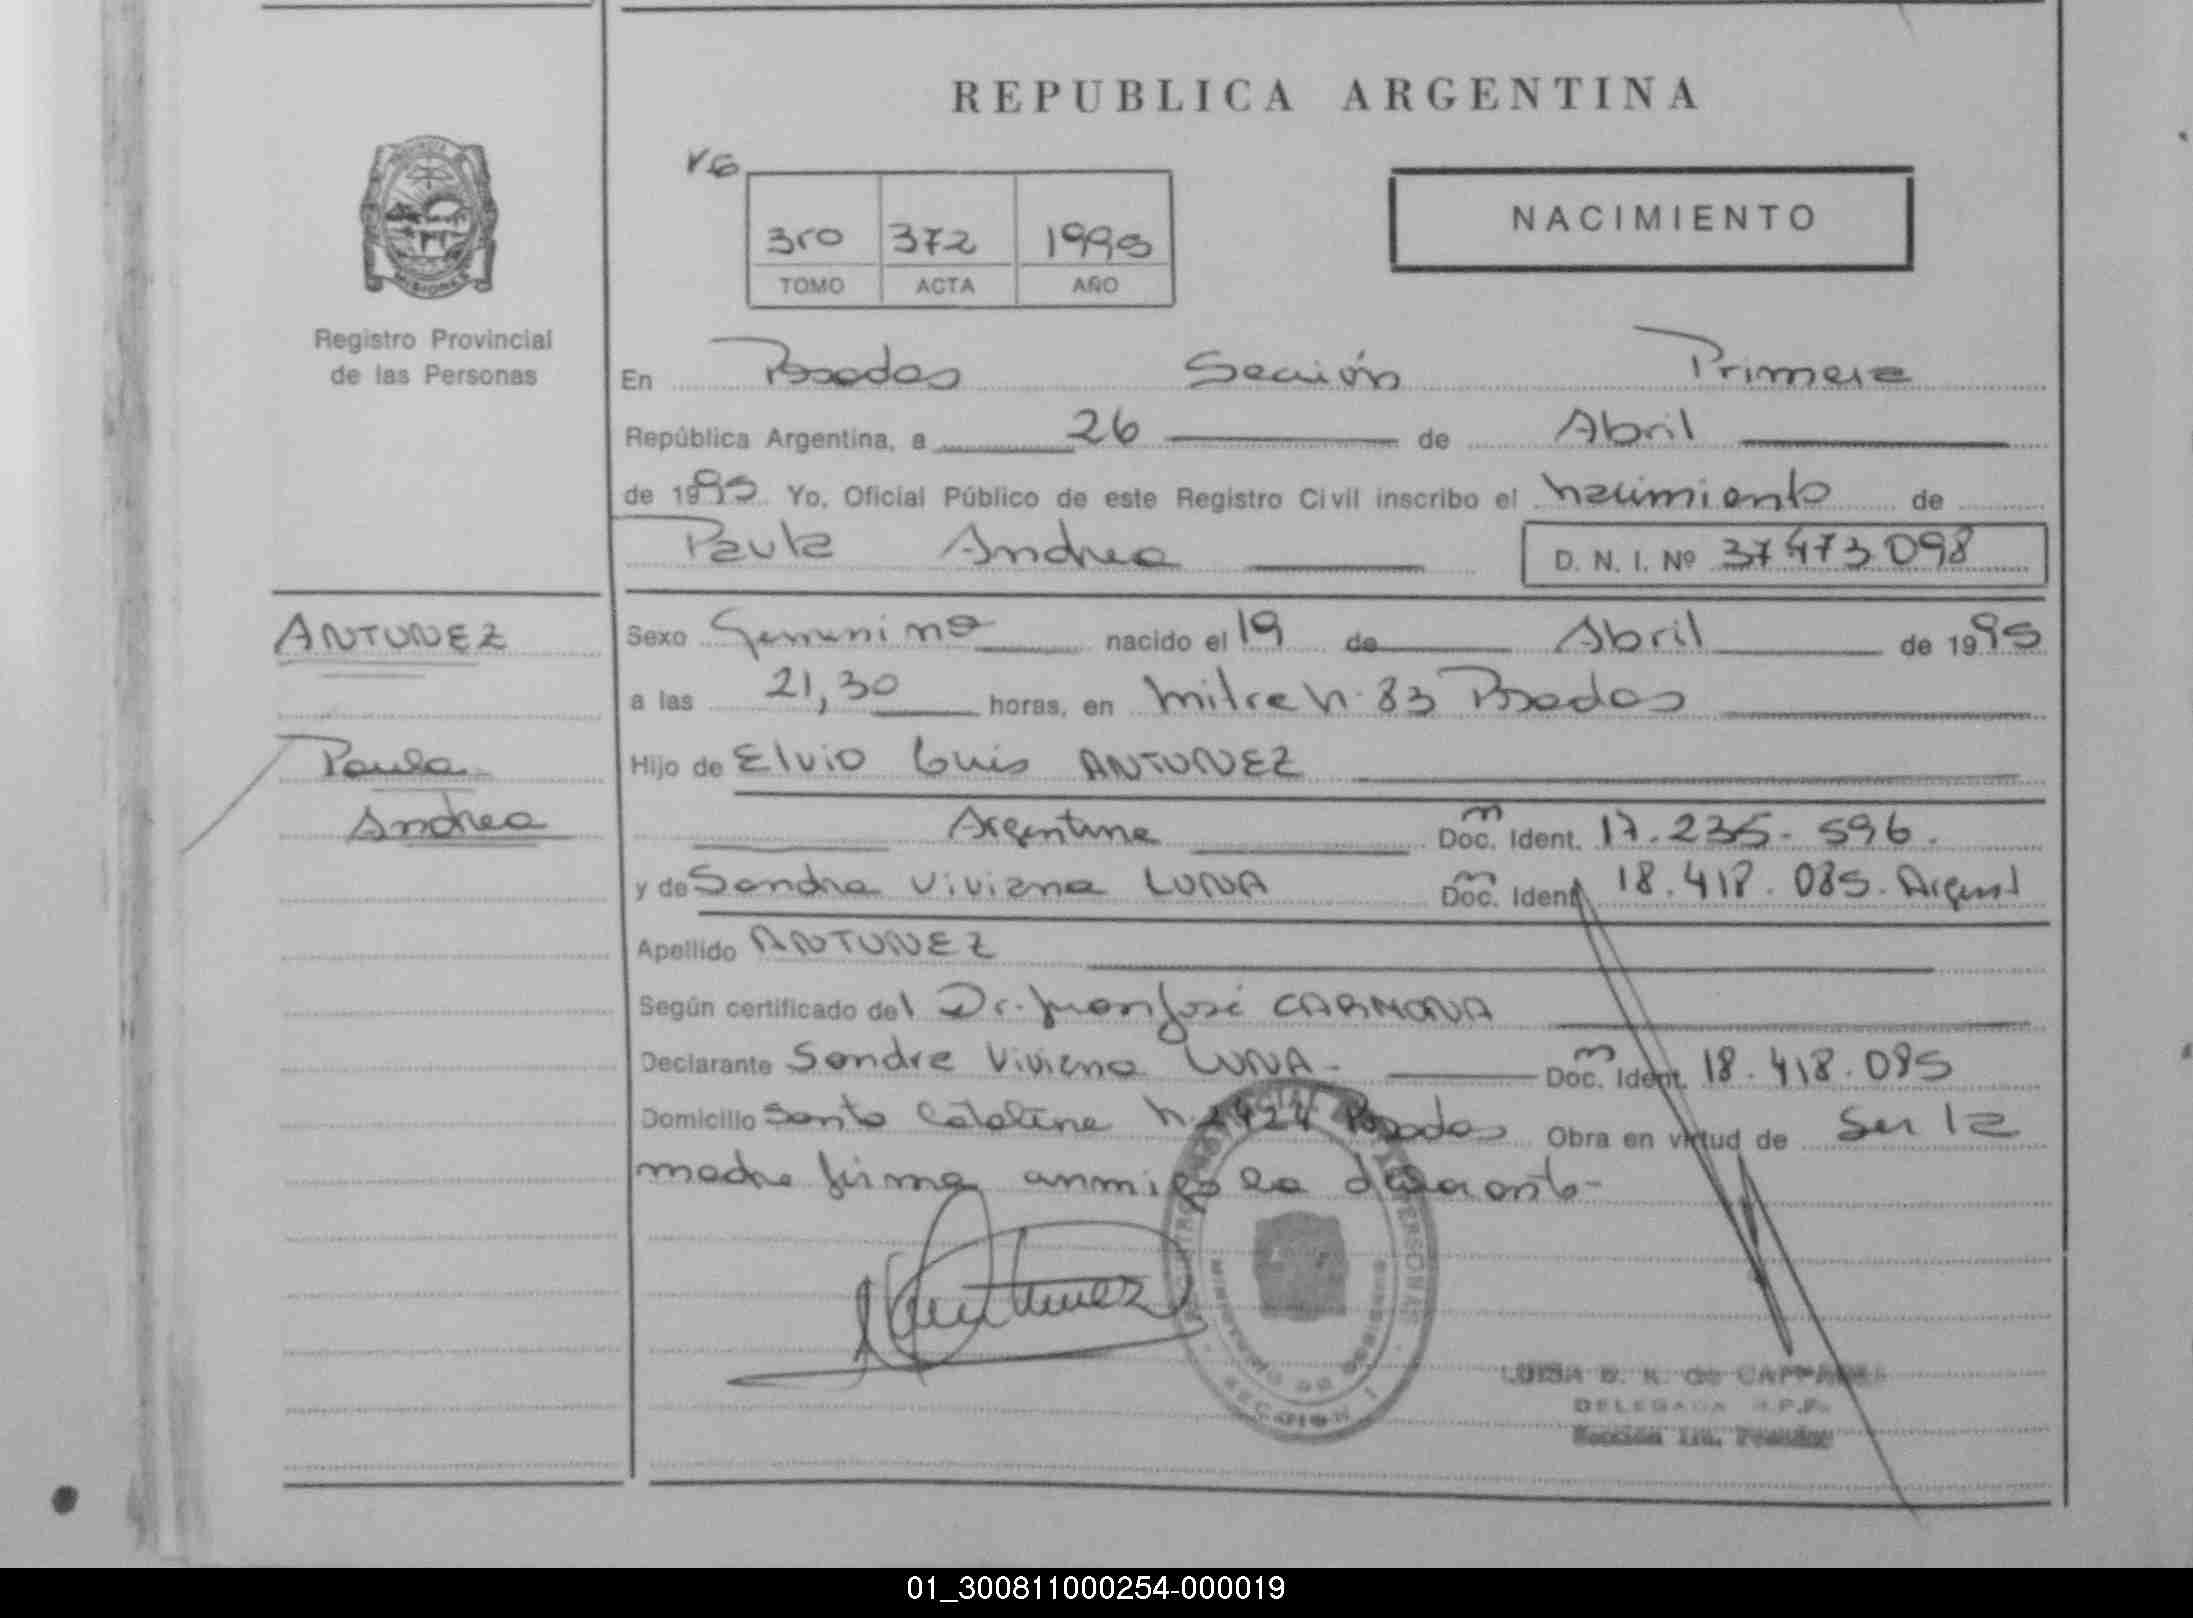 REPUBLICA ARGENTINA
NACIMIENTO
3ro 372 1995
TOMO ACTA AÑO
Registro Provincial
de las Personas
En Posadas Sección Primera
República Argentina, a 26 de Abril
de 1995 Yo, Oficial Público de este Registro Civil inscribo el nacimiento de
Paula Andrea D. N. I. Nº 37473098
ANTUNEZ
Paula
Andrea
Sexo femenino nacido el 19 de Abril de 1995
a las 21,30 horas, en Mitre N. 83 Posadas
Hijo de Elvio Luis ANTUNEZ
Argentina Doc. Ident. 17.235.596.
y de Sandra Viviana LUNA Doc. Ident. 18.418.085. Argent
Apellido ANTUNEZ
Según certificado del Dr. Juan José CARMONA
Declarante Sandra Viviana LUNA- Doc. Ident. 18.418.085
Domicilio Santa Catalina N. 2424 Posadas Obra en virtud de Ser la
madre firma conmigo la declarante-
Antunez
PERSONAS
MINISTERIO DE GOBIERNO
SECCION 1
LUISA B. R. de
DELEGADA R.P.P.
Sección 1ra. Posadas
01_300811000254-000019